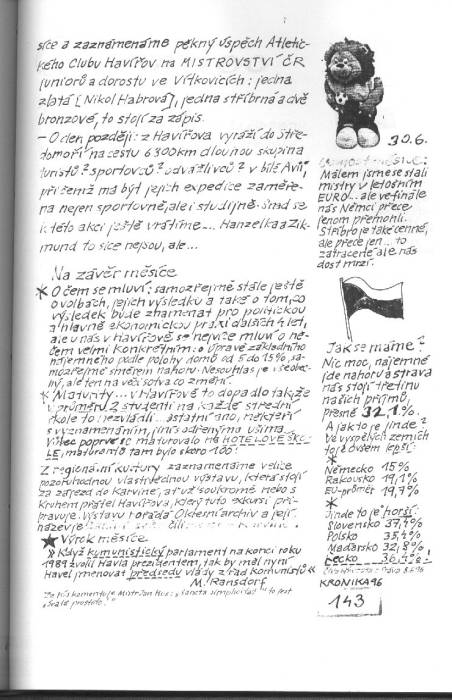 síce a zaznámenáme pěkný úspěch Atletic-
kého Clubu Havířov na MISTROVSTVÍ ČR
juniorů a dorostu ve Vítkovicích: jedna
zlatá [Nikol Habrová], jedna stříbrná a dvě
bronzové, to stojí za zápis.
– O den později: z Havířova vyráží do Stře-
domoří na cestu 6300 km dlouhou skupina
turistů? sportovců? odvážlivců? v bílé Avii,
při čemž má být jejich expedice zaměře-
na nejen sportovně, ale i studijně. Snad se
k této akci ještě vrátíme... Hanzelka a Zik-
mund to sice nejsou, ale...
Na závěr měsíce
* O čem se mluví: samozřejmě stále ještě
o volbách, jejich výsledku a také o tom, co
výsledek bude znamenat pro politickou
a hlavně ekonomickou praxi dalších 4 let,
ale u nás v Havířově se nejvíce mluví o ně-
čem velmi konkrétním: o úpravě základního
nájemného podle polohy domů od 5 do 15%, sa-
mozřejmě směrem nahoru. Nesouhlas je všeobec-
ný, ale ten na věci sotva co změní.
* Maturity... v Havířově to dopadlo tak, že
v průměru 2 studenti na každé střední
škole to nezvládli... ostatní ano, někteří
s vyznamenáním, jiní s odřenýma ušima.
Vůbec poprvé se maturovalo na HOTELOVÉ ŠKO-
LE, maturantů tam bylo skoro 100!
Z regionální kultury zaznamenáme velice
pozoruhodnou vlastivědnou výstavu, která stojí
za zájezd do Karviné, ať už soukromě nebo s
Kruhem přátel Havířova, který tuto exkurzi při-
pravuje. Výstavu pořádá Okresní archiv a její
název je
★ Výrok měsíce
» Když komunistický parlament na konci roku
1989 zvolil Havla prezidentem, tak by měl nyní
Havel jmenovat předsedu vlády z řad komunistů «
M. Ransdorf
30.6.
Málem jsme se stali
mistry v letošním
EURO... ale ve finále
nás Němci přece
jenom přemohli.
Stříbro je také cenné,
ale přece jen... to
zatracené ale nás
dost mrzí.
Jak se máme?
Nic moc, nájemné
jde nahoru a strava
nás stojí třetinu
našich příjmů,
přesně 32,1%.
A jak to je jinde?
Ve vyspělých zemích
to je ovšem lepší:
*
Německo 15%
Rakousko 19,1%
EU-průměr 19,7%
*
Jinde to je horší:
Slovensko 37,4%
Polsko 35,4%
Maďarsko 32,8%
Řecko 36,4%!
KRONIKA 96
143